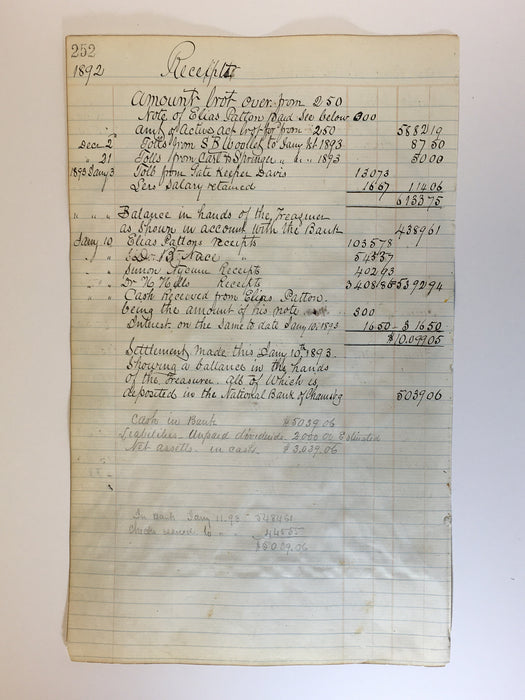 252
1892 Receipts
Amount brot over from 250
Note of Elias Patton paid See below 300
amt of active act brot for from 250 588219
Decr 2d Tolls from S B Woollet to Jany 1st 1893 8750
" 21 Tolls from Carl & Springer " " " 1893 5000
1893 Jany 3 Toll from Gate Keeper Davis 13073
Less Salary retained 1667 11406
613375
" " " Balance in hands of the Treasurer
as Shown in account with the Bank 438961
Jany 10 Elias Pattons receipts 103578
" " Nace " 54537
" " Simon Receipts 40293
" " Dr Receipts 340818 539294
" " Cash Received from Elias Patton
being the amount of his note 300
Interest on the Same to date Jany 10, 1893 1650 31650
$1009905
Settlement Made this Jany 10th 1893.
Showing a ballance in the hands
of the Treasurer all of Which is
deposited in the National Bank of Chambg 503906
Cash in Bank $5039.06
Liabilities. Unpaid dividends 2000.00 Estimated
Net assets. in cash. $3039.06
In bank Jany 11.93 - 548461
Checks to " " 44555
$5039.06